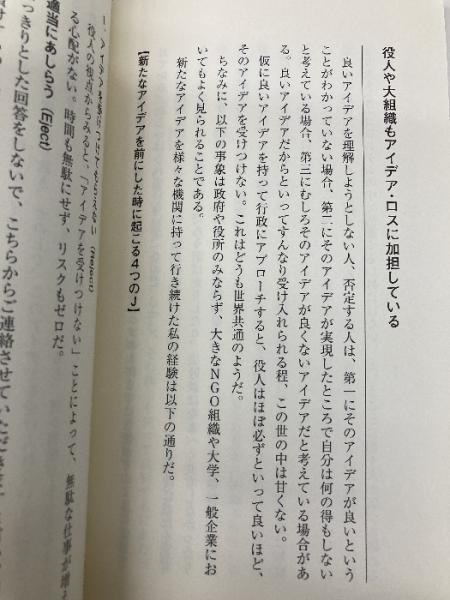 役人や大組織もアイデア・ロスに加担している
良いアイデアを理解しようとしない人、否定する人は、第一にそのアイデアが良いという
ことがわかっていない場合、第二にそのアイデアが実現したところで自分は何の得もしない
と考えている場合、第三にむしろそのアイデアが良くないアイデアだと考えている場合があ
る。良いアイデアだからといってすんなり受け入れられる程、この世の中は甘くない。
仮に良いアイデアを持って行政にアプローチすると、役人はほぼ必ずといって良いほど、
そのアイデアを受けつけない。これはどうも世界共通のようだ。
ちなみに、以下の事象は政府や役所のみならず、大きなNGO組織や大学、一般企業にお
いてもよく見られることである。
新たなアイデアを様々な機関に持って行き続けた私の経験は以下の通りだ。
【新たなアイデアを前にした時に起こる4つのJ】
(Reject)
役人の視点からみると、「アイデアを受けつけない」ことによって、無駄な仕事が増え
る心配がない。時間も無駄にせず、リスクもゼロだ。
適当にあしらう (Eject)
っきりとした回答をしないで、こちらからご連絡させていただき